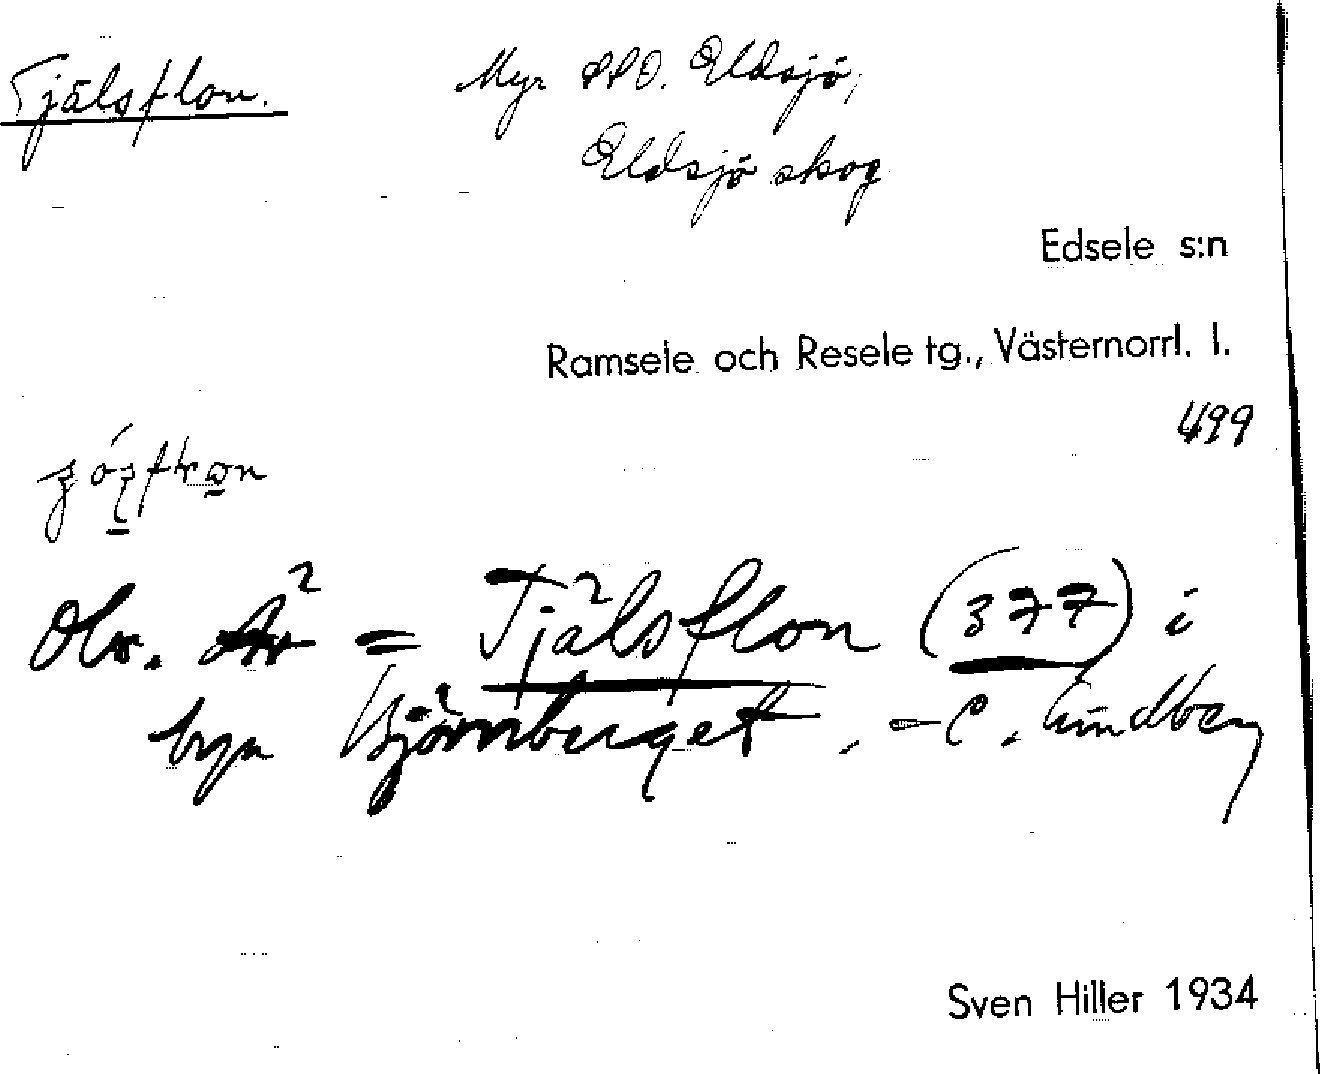 Tjälsflon. Myr SSO. Eldsjö,
Eldsjö skog
Edsele s:n
Ramsele och Resele tg., Västernorrl. l.
499
Obs. = Tjälsflon (377) i
byn Björnberget, - C. Lindberg
Sven Hiller 1934